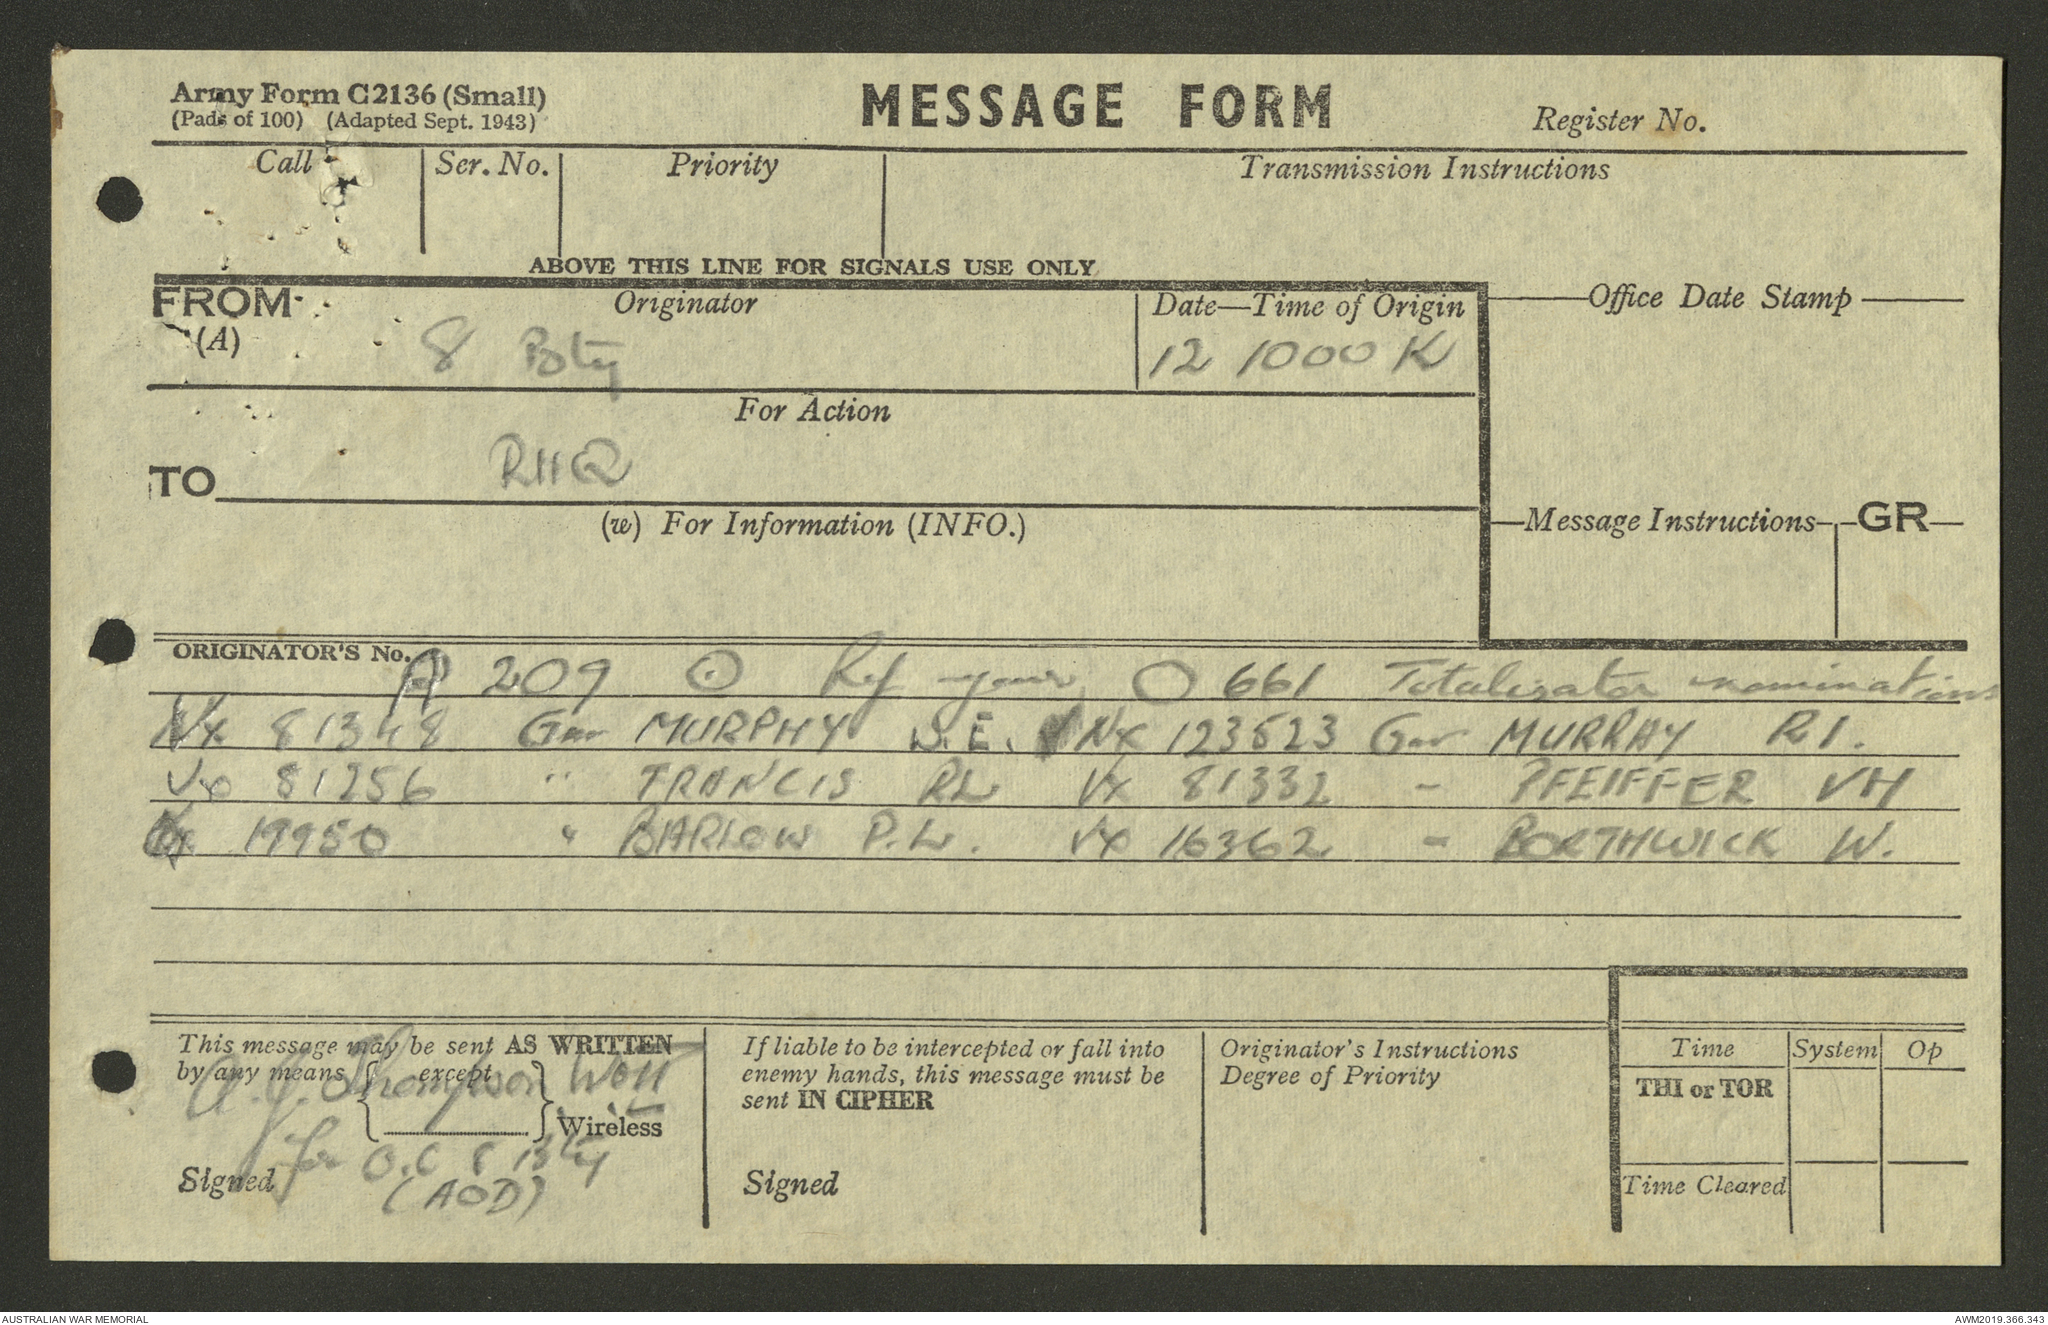 Army Form C2136 (Small)
(Pads of 100) (Adapted Sept. 1943)
MESSAGE FORM
Register No.
Call Ser. No. Priority Transmission Instructions
ABOVE THIS LINE FOR SIGNALS USE ONLY
FROM
(A)
Originator
8 Bty
Date—Time of Origin
12 1000 K
Office Date Stamp
For Action
TO
RHQ
(w) For Information (INFO.)
Message Instructions GR
ORIGINATOR'S No.
A 209 O Ref your O 661 Totalizator nominations
NX 81348 Gnr MURPHY W.E. NX 123523 Gnr MURRAY R I.
VX 81256 " FRANCIS RL VX 81332 - PFEIFFER VH
19950 " BARLOW P.L. VX 16362 - BORTHWICK W.
This message may be sent AS WRITTEN
by any means except
Thompson WOII
Wireless
for O.C 8 Bty
Signed
(AOD)
If liable to be intercepted or fall into
enemy hands, this message must be
sent IN CIPHER
Signed
Originator's Instructions
Degree of Priority
Time System Op
THI or TOR
Time Cleared
AUSTRALIAN WAR MEMORIAL
AWM2019.366.343